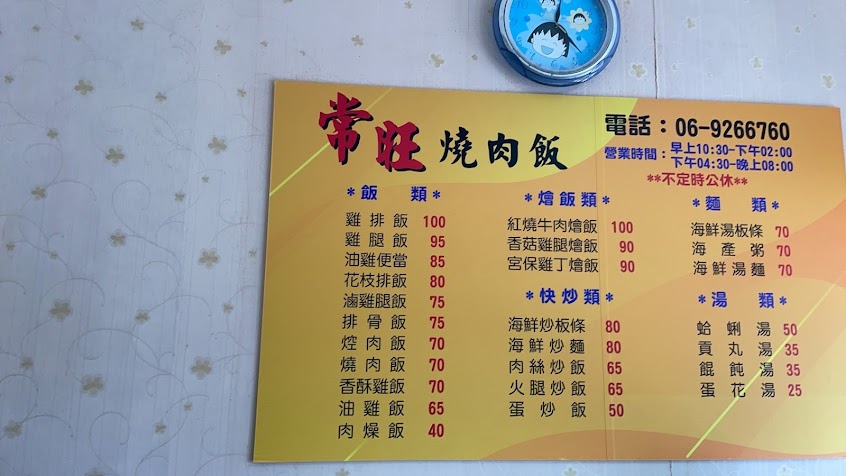 常旺 燒肉飯
電話：06-9266760
營業時間：早上10:30-下午02:00
下午04:30-晚上08:00
**不定時公休**
*飯 類*
雞排飯 100
雞腿飯 95
油雞便當 85
花枝排飯 80
滷雞腿飯 75
排骨飯 75
焢肉飯 70
燒肉飯 70
香酥雞飯 70
油雞飯 65
肉燥飯 40
*燴飯類*
紅燒牛肉燴飯 100
香菇雞腿燴飯 90
宮保雞丁燴飯 90
*快炒類*
海鮮炒板條 80
海鮮炒麵 80
肉絲炒飯 65
火腿炒飯 65
蛋炒飯 50
*麵 類*
海鮮湯板條 70
海產粥 70
海鮮湯麵 70
*湯 類*
蛤蜊湯 50
貢丸湯 35
餛飩湯 35
蛋花湯 25